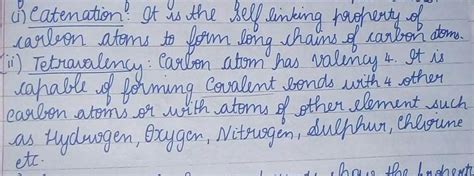 (i) Catenation: It is the self linking property of
carbon atoms to form long chains of carbon atoms.
ii) Tetravalency: Carbon atom has valency 4. It is
capable of forming Covalent bonds with 4 other
carbon atoms or with atoms of other element such
as Hydrogen, Oxygen, Nitrogen, Sulphur, Chlorine
etc.
the